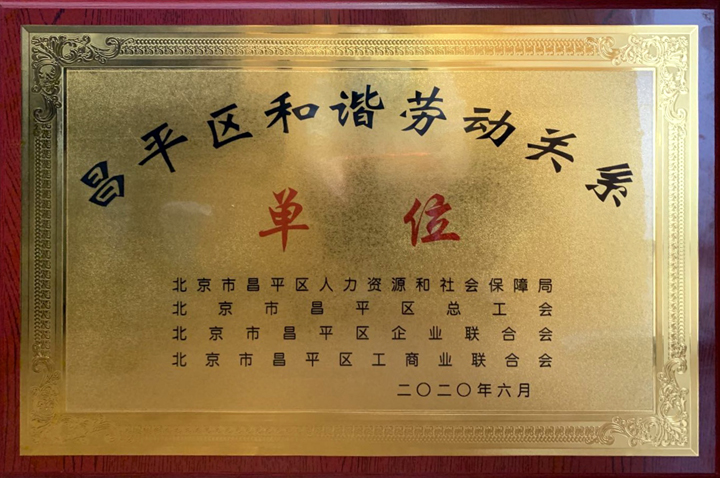 昌平区和谐劳动关系
单位
北京市昌平区人力资源和社会保障局
北京市昌平区总工会
北京市昌平区企业联合会
北京市昌平区工商业联合会
二〇二〇年六月